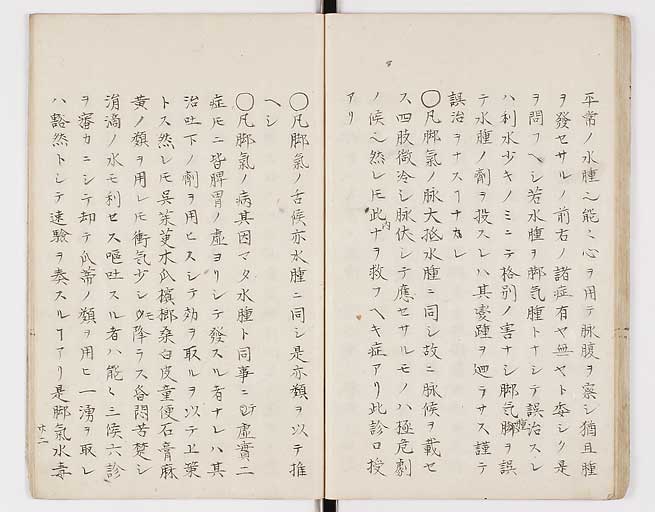 平常ノ水腫也能々心ヲ用テ脉腹ヲ察シ猶且腫
ヲ發セサルノ前右ノ諸症有ヤ無ヤト委シク是
ヲ問フヘシ若水腫ヲ脚気腫トナシテ誤治スレ
ハ利水少キノミニテ格別ノ害ナシ脚気腫ヲ誤
テ水腫ノ劑ヲ投スレハ其変踵ヲ廻ラサス謹テ
誤治ヲナスヿナカレ
〇凡脚氣ノ脉大抵水腫ニ同シ故ニ脉候ヲ載セ
ス四肢微冷シ脉伏シテ應セサルモノハ極危劇
ノ候也然レ𪜈此内ナヲ救フヘキ症アリ此診口授
アリ
〇凡脚氣ノ舌候亦水腫ニ同シ是亦類ヲ以テ推
ヘシ
〇凡脚氣ノ病其因マタ水腫ト同事ニ虚實二
症𪜈ニ皆脾胃ノ虚ヨリシテ發スル者ナレハ其
治吐下ノ劑ヲ用ヒスシテ効ヲ取ルヲ以テ上策
トス然レ𪜈呉茱萸木瓜檳榔桑白皮童便石膏麻
黄ノ類ヲ用レ𪜈衝気少シモ降ラス昏悶苦楚シ
涓滴ノ水モ利セス嘔吐スル者ハ能々三候六診
ヲ審カニシテ却テ瓜蒂ノ類ヲ用ヒ一湧ヲ取レ
ハ豁然トシテ速驗ヲ奏スルヿアリ是脚氣水毒
廿二